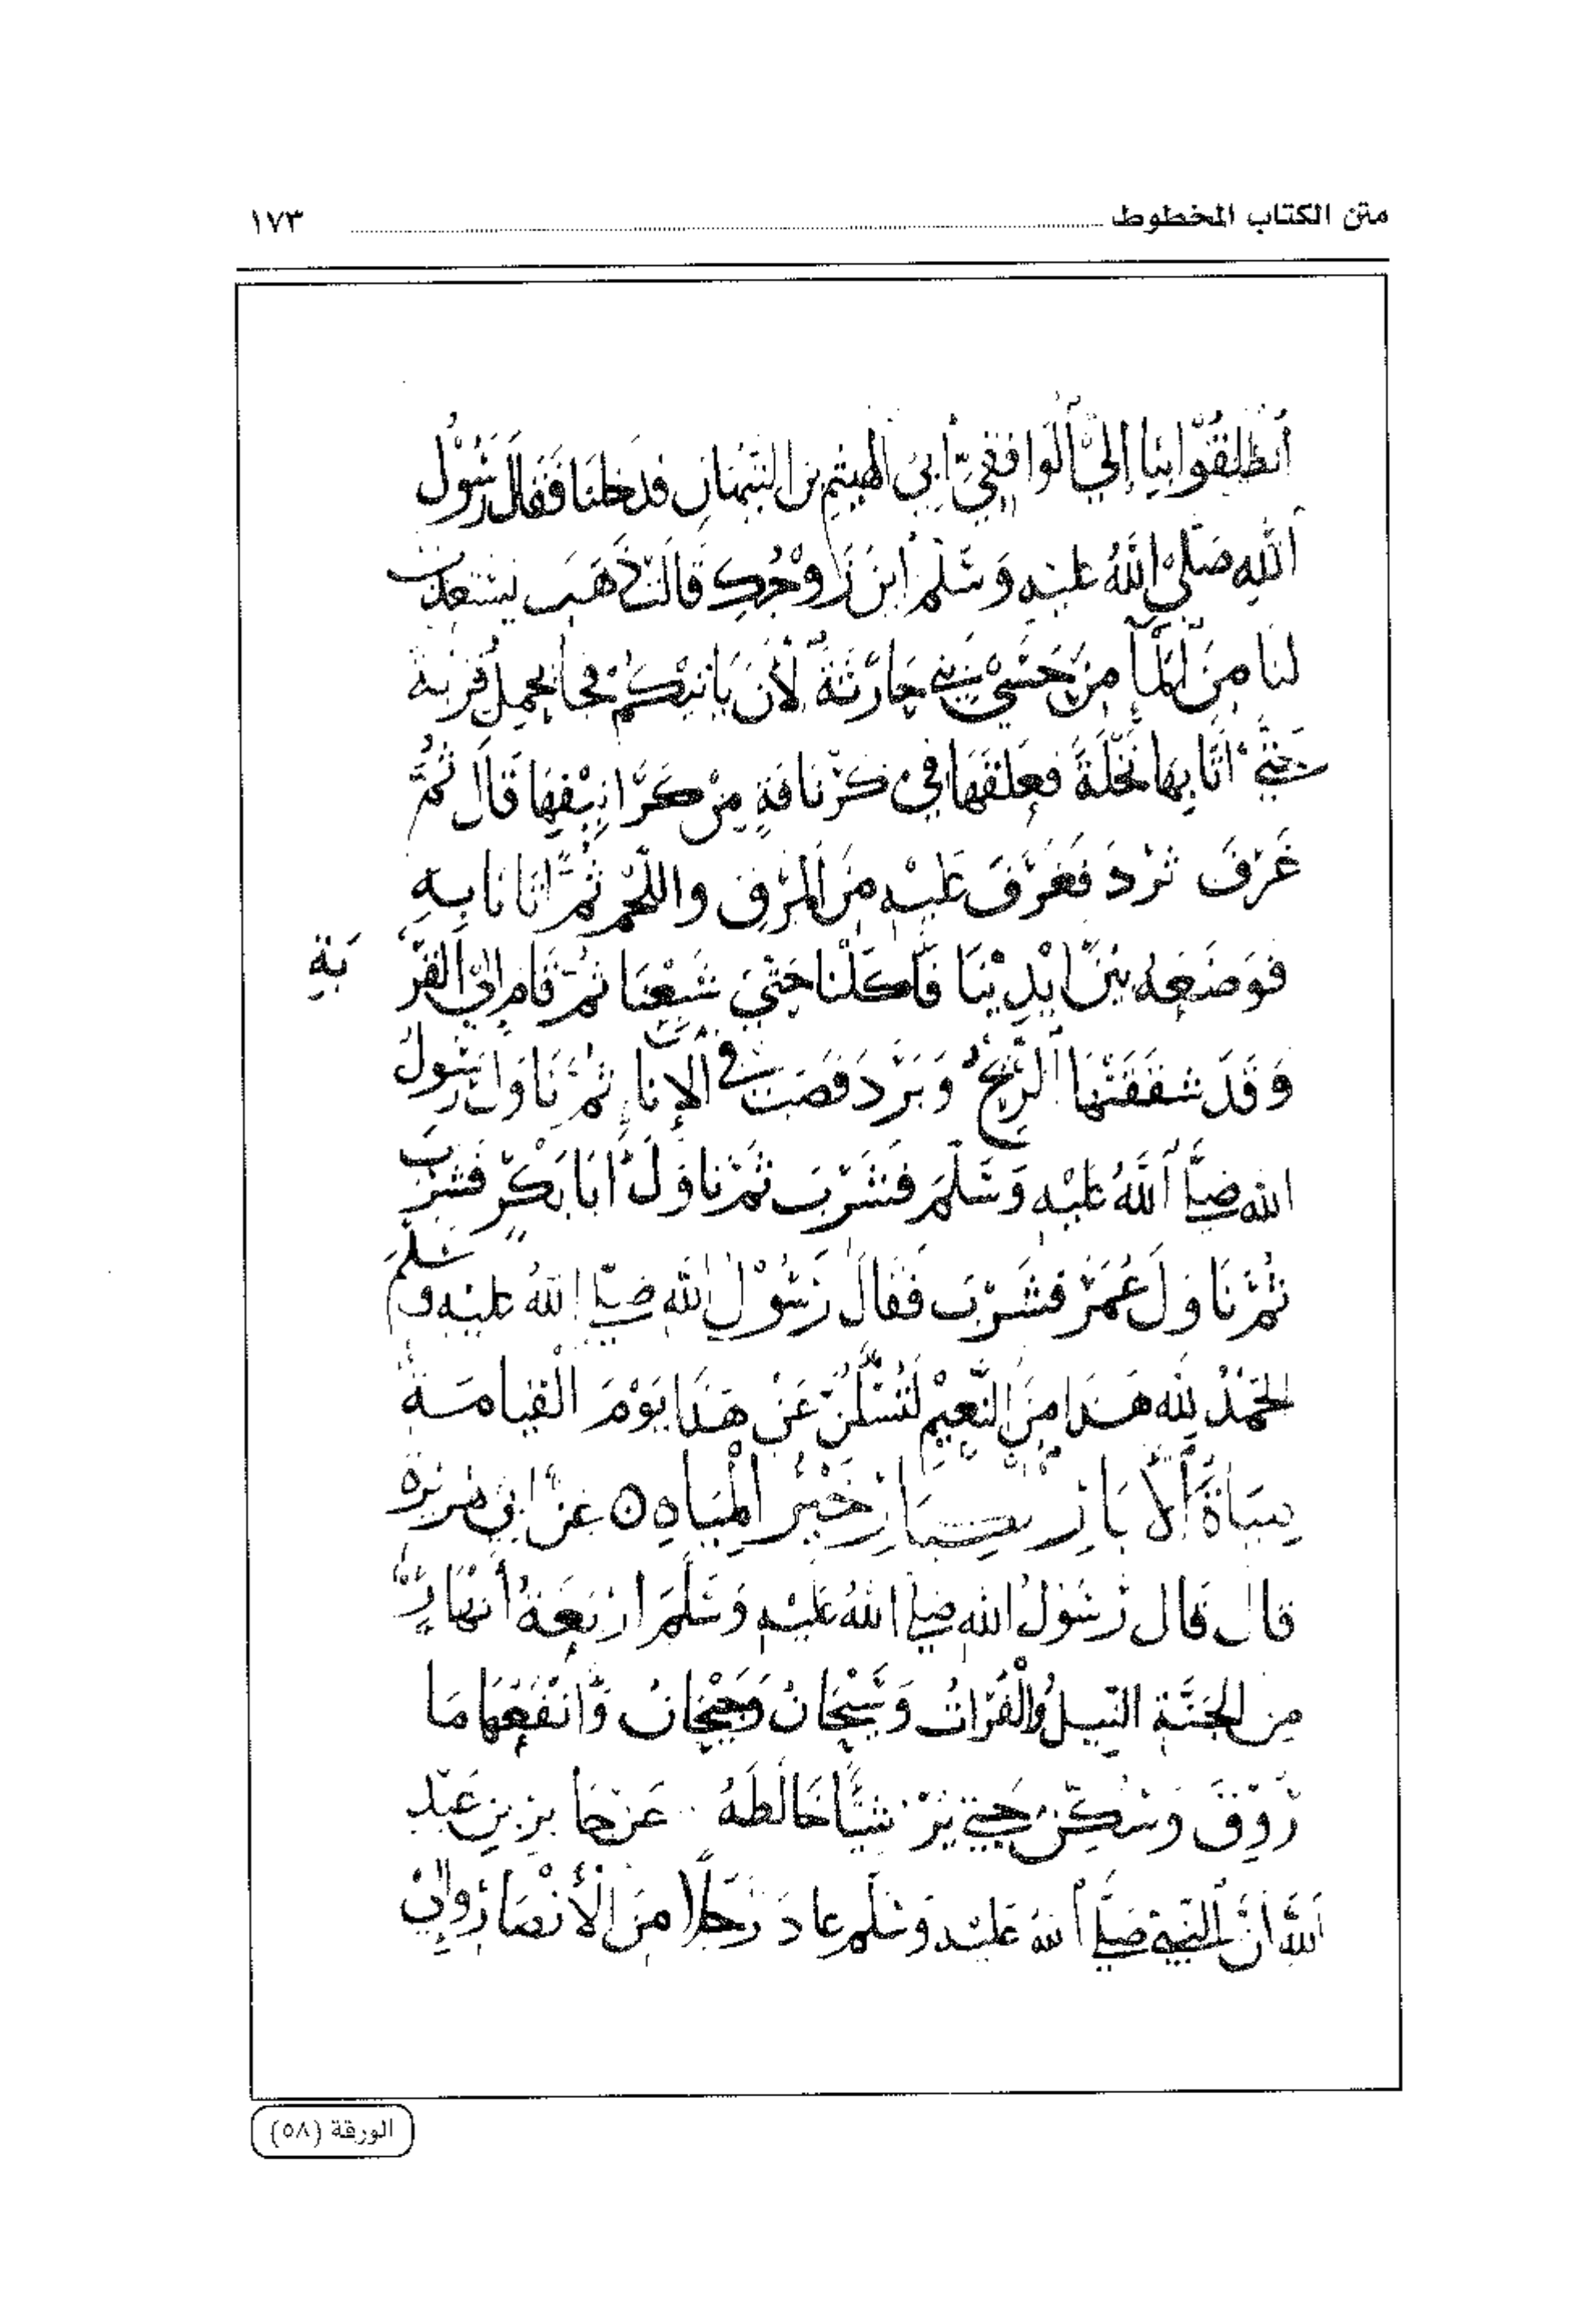 متن الكتاب المخطوط ١٧٣
أنطلقوا بنا إلي ألواقفي أبي الهيثم بن التيهان فدخلنا فقال رسول
ألله صلي الله عليه وسلم أين زوجك قالت ذهب يستعذب
لنا من ألمآ من حسي بني حارثة لأن يأتيكم فجا يحمل قربة
حتي أتا بها نخلة فعلقها في كرنافة من كرانيفها قال ثم
غرف ثرد فغرف عليه من المرق واللحم ثم أتانا به
فوضعه بين أيدينا فأكلنا حتي شبعنا ثم قام الي القربة
وقد شففتها ألريح وبرد فصب في ألإنا ثم ناول رسول
الله صلي ألله عليه وسلم فشرب ثم ناول أبا بكر فشرب
ثم ناول عمر فشرب فقال رسول الله صلي الله عليه وسلم
الحمد لله هذا من النعيم لتسئلن عن هذا يوم القيامة
مياه ألأبار خير المياه ٥ عن أبي هريرة
قال قال رسول الله صلي الله عليه وسلم اربعة أنهار
من الجنة النيل والفرات وسيحان وجيحان وانفعها ما
روق وسكن حتي يرسب ما خالطه عن جابر بن عبد
ألله أن ألنبي صلي ألله عليه وسلم عاد رجلا من الأنصار والي
الورقة (٥٨)